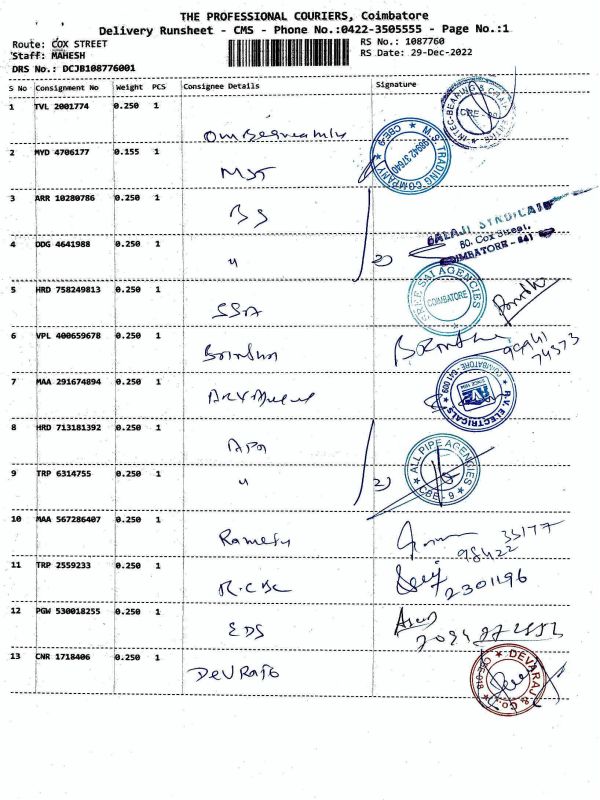 THE PROFESSIONAL COURIERS, Coimbatore
Delivery Runsheet - CMS - Phone No.:0422-3505555 - Page No.:1
Route: COX STREET
Staff: MAHESH
DRS No.: DCJB108776001
RS No.: 1087760
RS Date: 29-Dec-2022
S No Consignment No Weight PCS Consignee Details Signature
1 TVL 2001774 0.250 1
CBE
2 MYD 4706177 0.155 1
MST
M.S. TRADING COMPANY CBE-9
98942 37640
3 ARR 10280786 0.250 1
BS
BALAJI SYNDICATE
80, Cox Street,
COIMBATORE - 641
4 DDG 4641988 0.250 1
" 2)
5 HRD 758249813 0.250 1
SSA
SREE SAI AGENCIES
COIMBATORE
6 VPL 400659678 0.250 1
99941
74373
7 MAA 291674894 0.250 1
R.V. ELECTRICALS COIMBATORE - 641 009
8 HRD 713181392 0.250 1
APA
ALL PIPE AGENCIES CBE - 9
9 TRP 6314755 0.250 1
" 2)
10 MAA 567286407 0.250 1
Ramesh
98422 35177
11 TRP 2559233 0.250 1
2301196
12 PGW 530018255 0.250 1
EDS
13 CNR 1718406 0.250 1
DEVRAJ
DEVARAJ & Co.